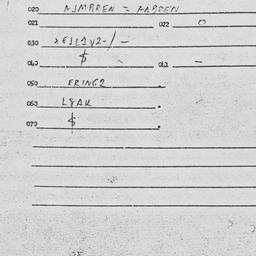 020 AJMRREN = FARDEN
021 022 O
030 XEJL2V2-/ -
040 $ 041 -
050 ERING2 .
060 L8AK .
070 $ .